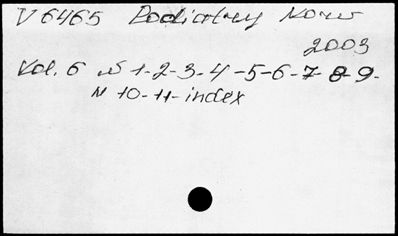 V 6465 Podiatry Now
2003
Vol. 6 N 1-2-3-4-5-6-7-8-9-
N 10-11-index